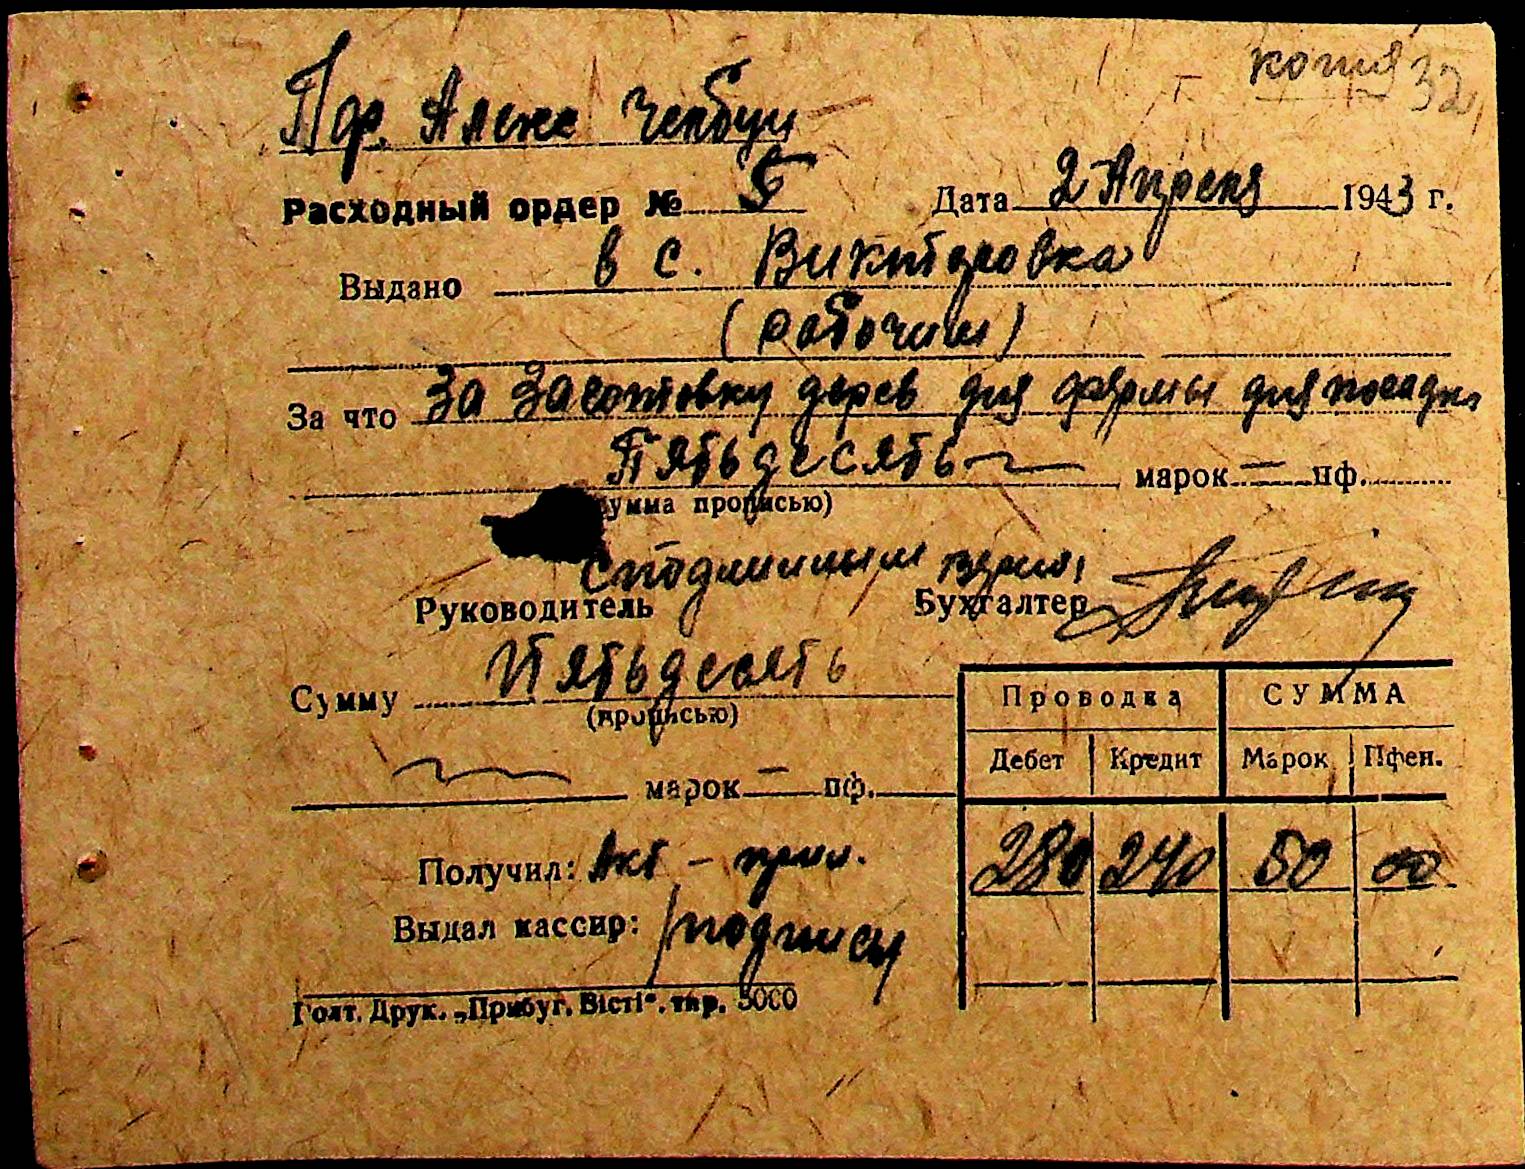 копия 32
Пф. Алекс
Расходный ордер № 5 Дата 2 Апреля 1943 г.
Выдано в с. Викторовка
(рабочим)
За что За Заготовку дерев для фермы для посадки
Пятьдесять марок — пф.
сумма прописью)
С подлинным верно:
Руководитель Бухгалтер
Сумму Пятьдесять
(прописью)
марок — пф.
Проводка СУММА
Дебет Кредит Марок Пфен.
280 240 50 00
Получил: Акт — прил.
Выдал кассир: /подписи
Голт. Друк. „Прибуг. Вісті“. тир. 5000